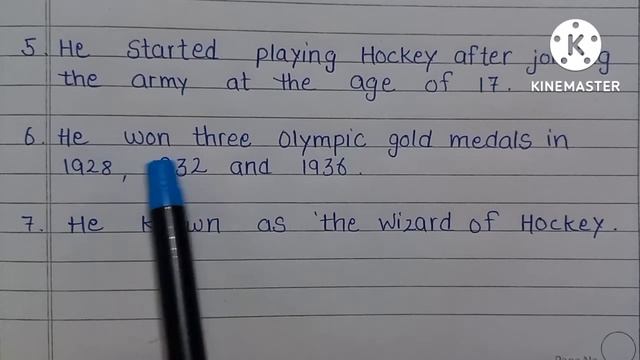 5. He started playing Hockey after
the army at the age of 17.
KINEMASTER
6. He won three Olympic gold medals in
1928, 32 and 1936.
7. He as the wizard of Hockey.